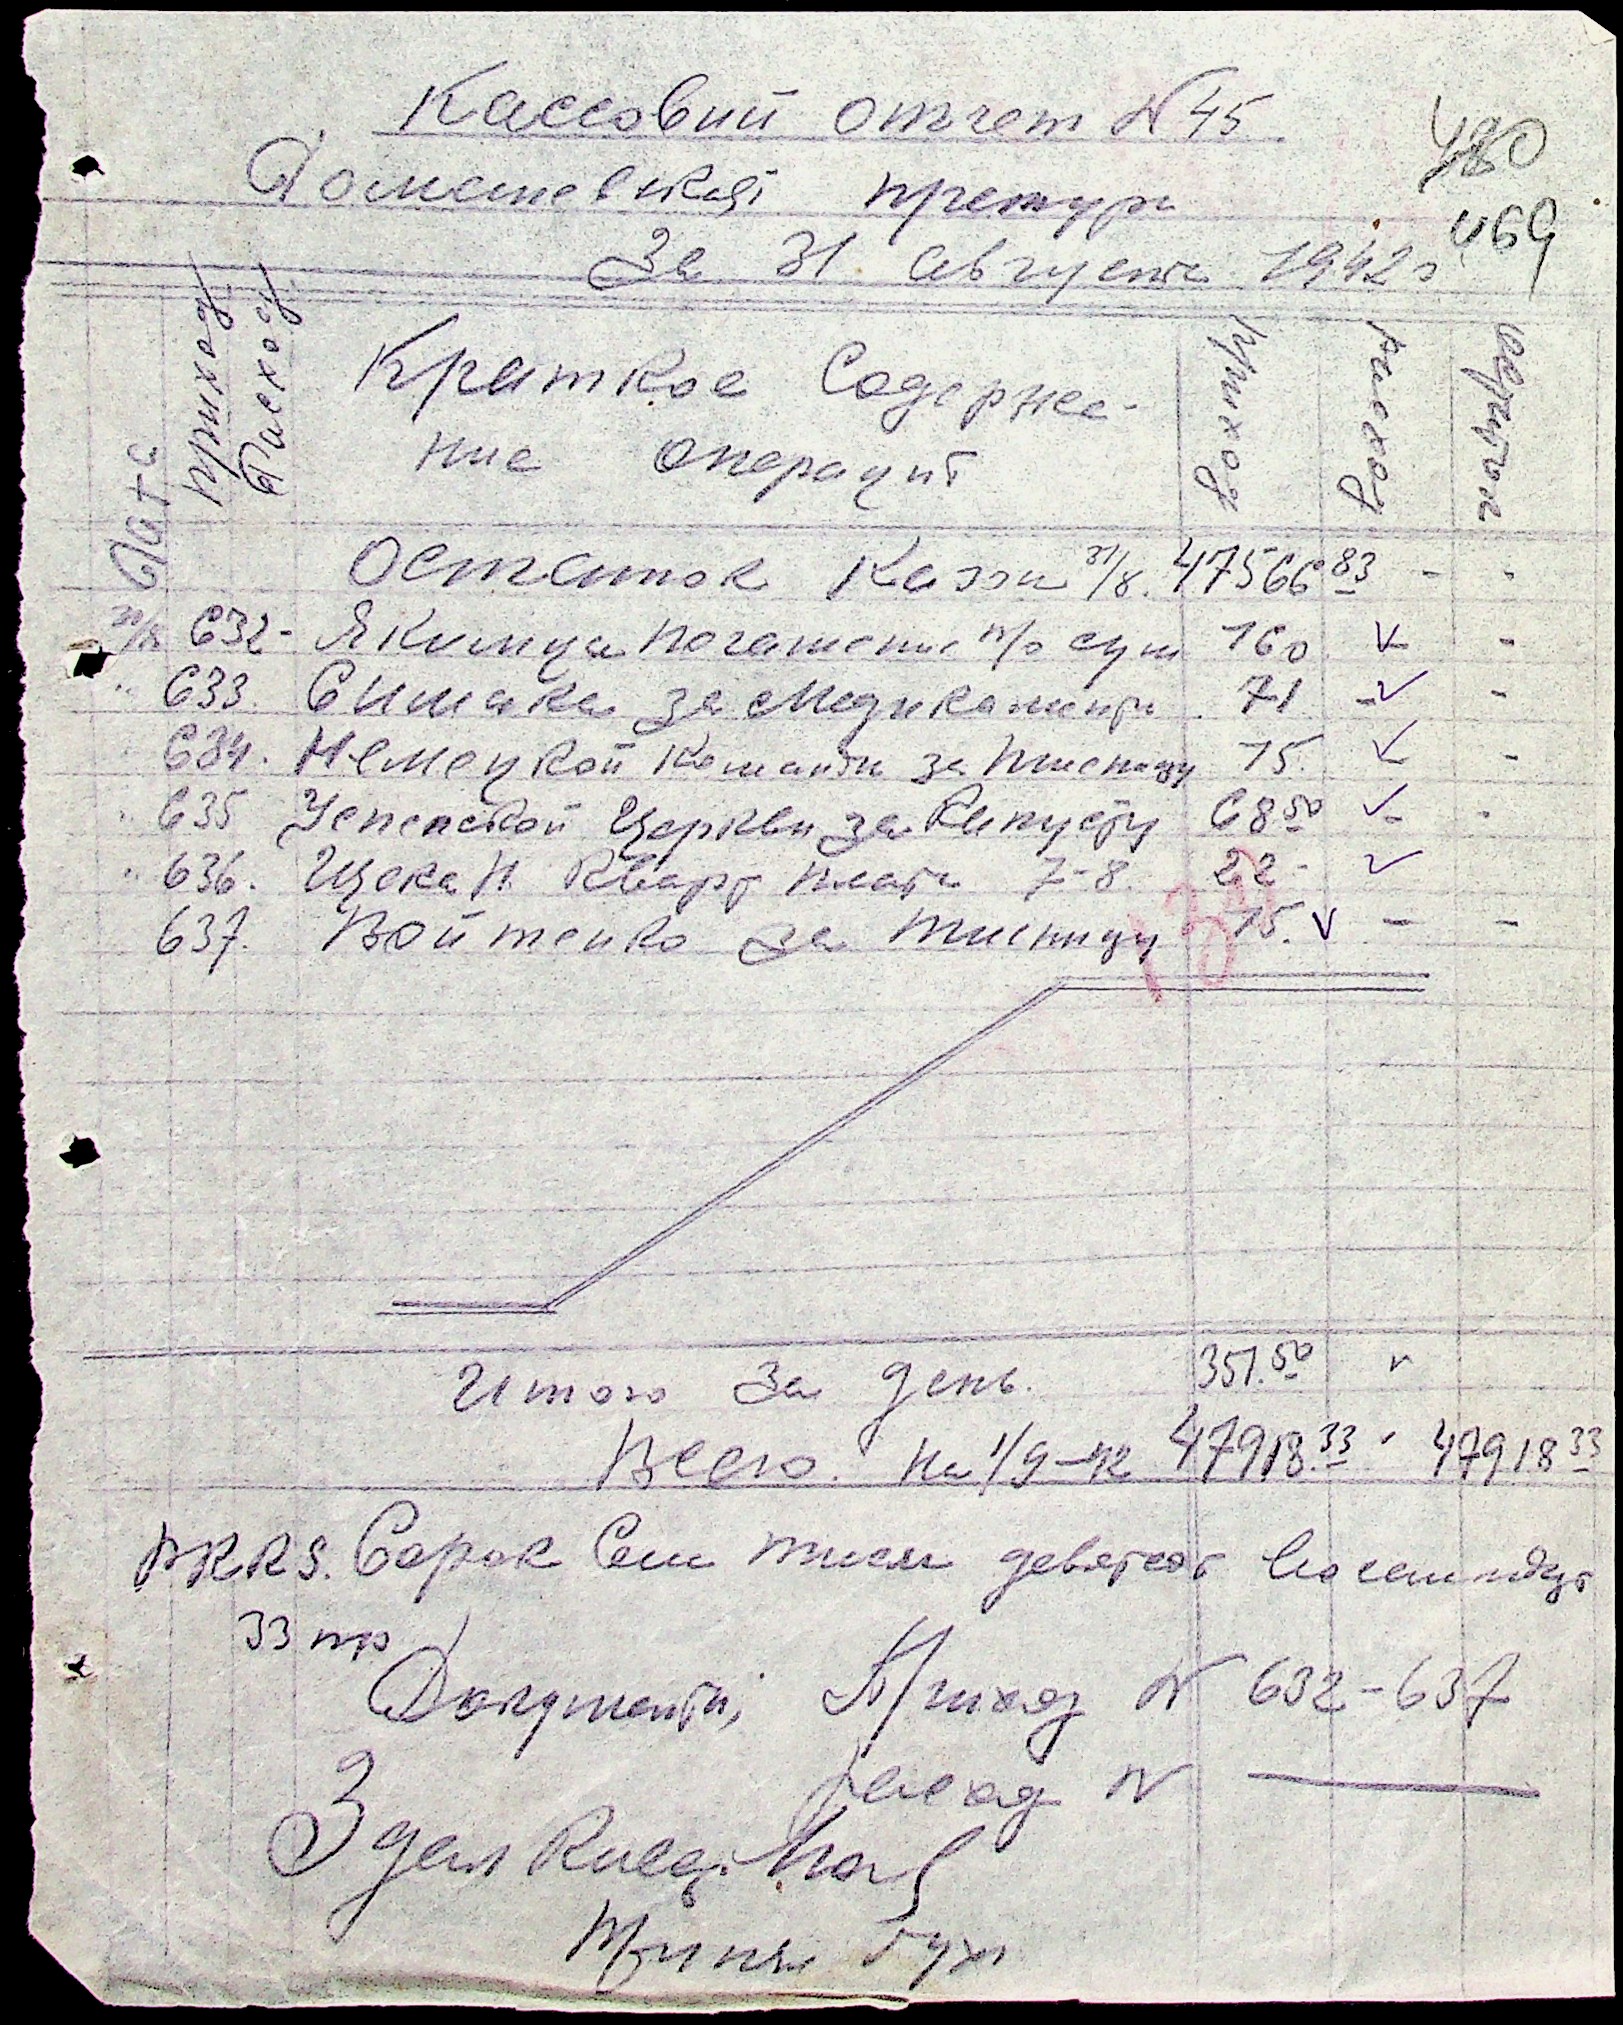 Кассовий отчет N 45
480
Доманевской претури
469
За 31 августа 1942 г
Дата
Приход
Расход
Краткое Содержа-
ние операций
Приход
Расход
Остаток
Остаток Касси 31/8. 47566 83 - -
31/8 632 - Якимца погашение п/о сум 160 -
" 633. Симака за Медикаменти 71 - -
" 634. Немецкой Команди за Пшеницу 15. - -
" 635 Успенской Церкви за Капусту 68 50 - -
" 636. кварт плата 7-8. 22 -
637. Войтенко за Пшеницу 15. - -
Итого за день. 351.50 "
Всего. на 1/9-42 47918.33 " 47918 33
RKKS. Сорок Сем тисяч девятсот Восемнадцат
33 пф
Документи; Приход N 632-637
расход N
Здал Касси
Принял Бухг